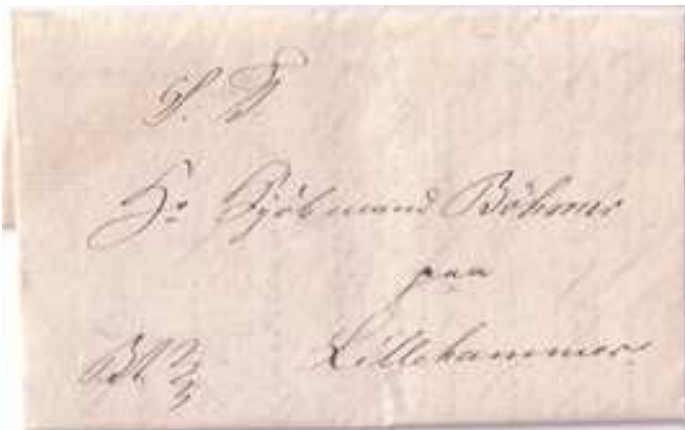 S. T
Hr Kjöbmand Böhmer
paa
Lillehammer